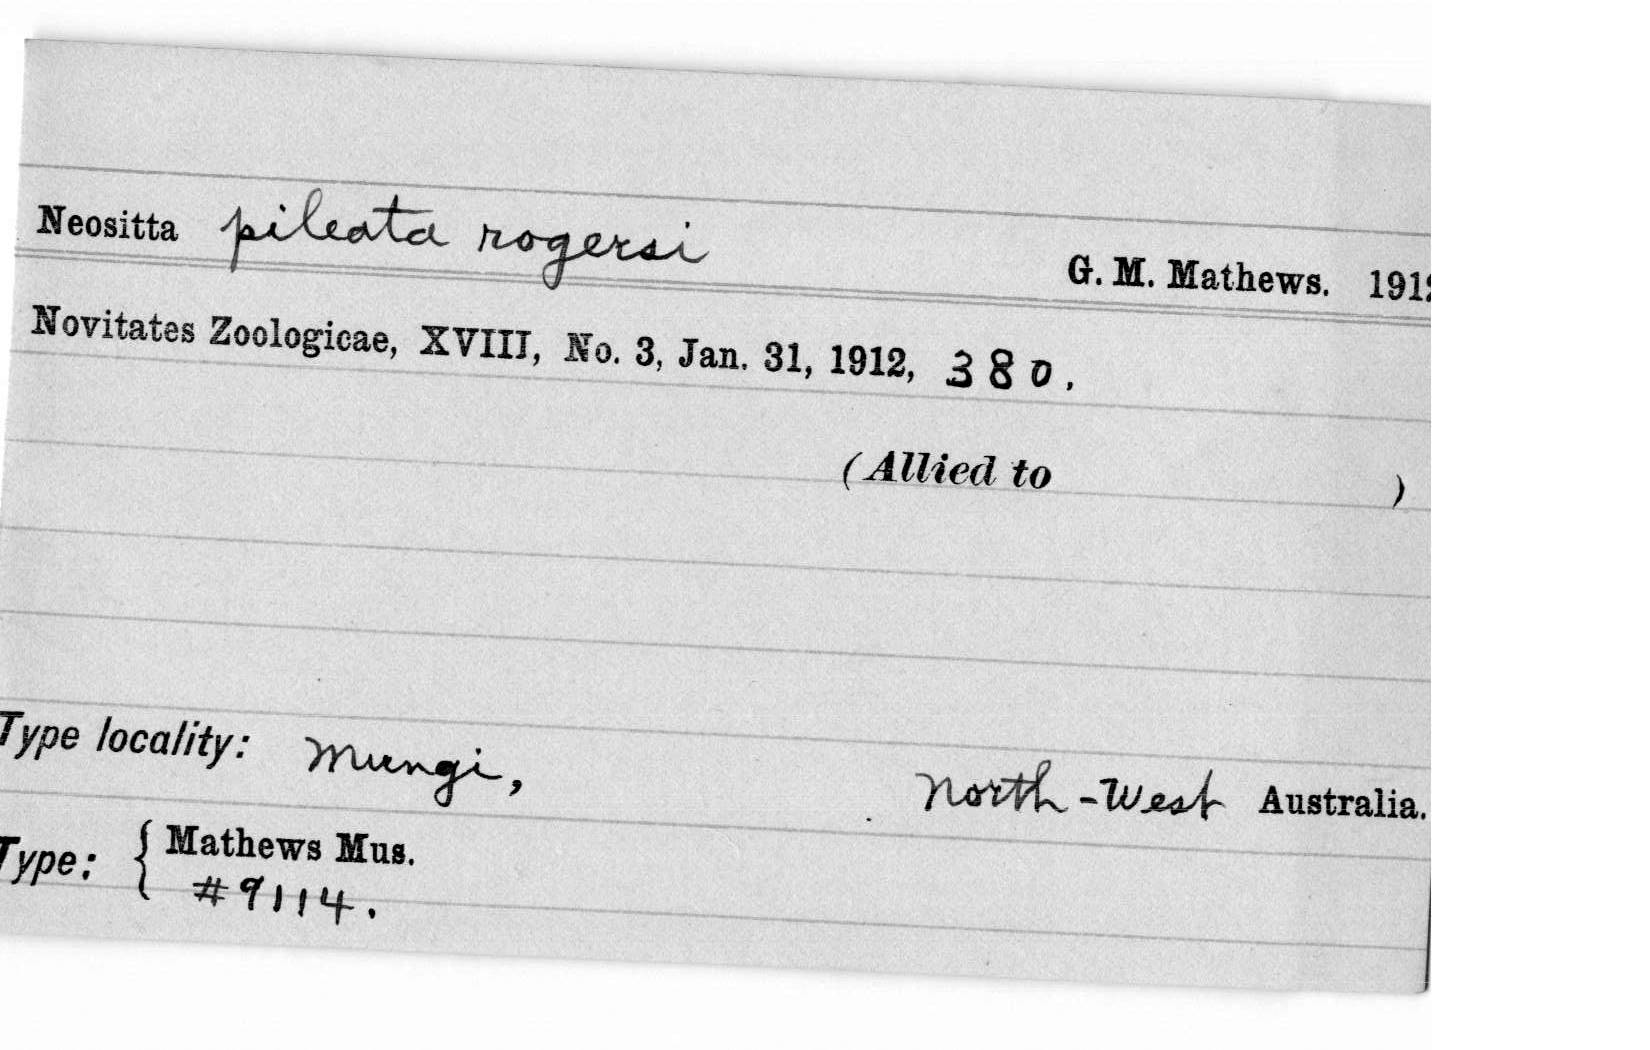 Neositta pileata rogersi G. M. Mathews. 1912
Novitates Zoologicae, XVIII, No. 3, Jan. 31, 1912, 380.
(Allied to )
Type locality: Mungi, North-West Australia.
Type: { Mathews Mus.
#9114.